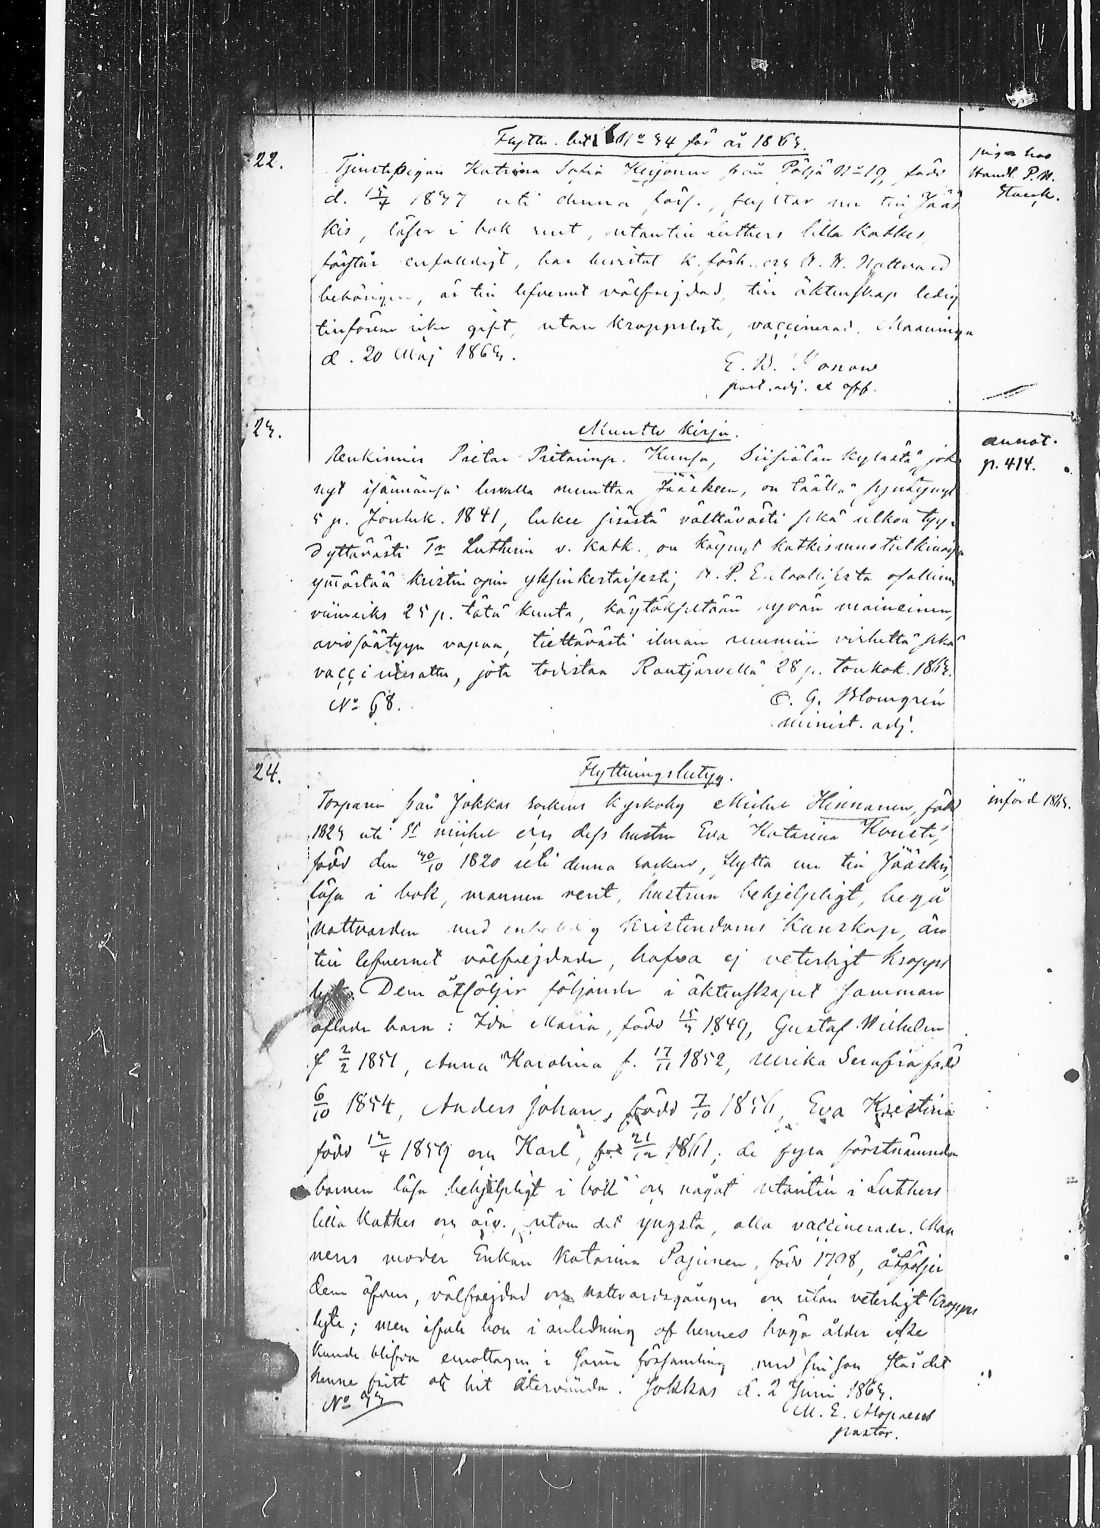 22.
Flyttn. bet. No 44 för år 1863.
Tjenstepigan Katrina Sofia Keijonen från Pöljä No 19, född
d. 15/4 1847 uti denna förs., flyttar nu till Jääs
kis, läser i bok rent, utantill Luthers lilla Kattkes,
förstår enfaldigt, har bevistat k. förh. och H. H. Nattvard
behörigen, är till lefvernet välfrejdad, till äktenskap ledig
tillförene icke gift, utan kroppslyte, vaccinerad. Maaninga
d. 20 Maj 1863.
past. adj. ex off.
piga hos
Handl. P. W.
23.
Muutto Kirja.
Renkimies Pietar Pietarinp. Kunsa, kylästä, joka
nyt isäntänsä luvalla muuttaa Jääskeen, on täällä syndynyt
5 p. Jouluk. 1841, lukee sisästä välttävästi sekä ulkoa tyy-
dyttävästi Tr Lutherin v. Katk., on käynyt katkismustutkinnoissa
ymmärtää kristin opin yksinkertaisesti, H. P. Ehtoollisesta osallinen
viimeiks 25 p. tätä kuuta, käytökseltään hyvän maineinen,
aviosäätyyn vapaa, tiettävästi ilman ruumiin virhettä sekä
vaccineerattu, jota todistaa Rautjärvellä 28 p. toukok. 1863.
No 68.
C. G. Blomgrén
minist. adj.
annot.
p. 414.
24.
Flyttningsbetyg.
Torparen från Jokkas sockens Kyrkoby Michel Hinnanen, född
1823 uti St Michel och dess hustru Eva Katarina
född den 1820 uti denna socken, flytta nu till Jääskis,
läsa i bok, mannen rent, hustrun behjelpligt, begå
nattvarden med enfaldig kristendoms kunskap, äro
till lefvernet välfrejdade, hafva ej veterligt kropps
lyte. Dem åtföljer följande i äktenskapet samman
aflade barn: Ida Maria, född 1849, Gustaf Wilhelm
f 2/2 1851, Anna Karolina f. 17/11 1852, Ulrika Serafia född
6/10 1854, Anders Johan, född 7/10 1856, Eva Kristina
född 12/4 1859 och Karl, född 21/12 1861; de fyra förstnämnda
barnen läsa behjelpligt i bok och något utantill i Luthers
lilla Kattkes och äro, utom det yngsta, alla vaccinerade. Man
nens moder Enkan Katarina Pajunen, född 1798, åtföljer
dem äfven, välfrejdad och nattvardsgången och utan veterligt kropps
lyte; men ifall hon i anledning af hennes höga ålder icke
kunde blifva emottagen i samma församling med sin son står det
henne fritt att hit återvända. Jokkas d. 2 Juni 1863.
M. E.
pastor.
införd 1863.